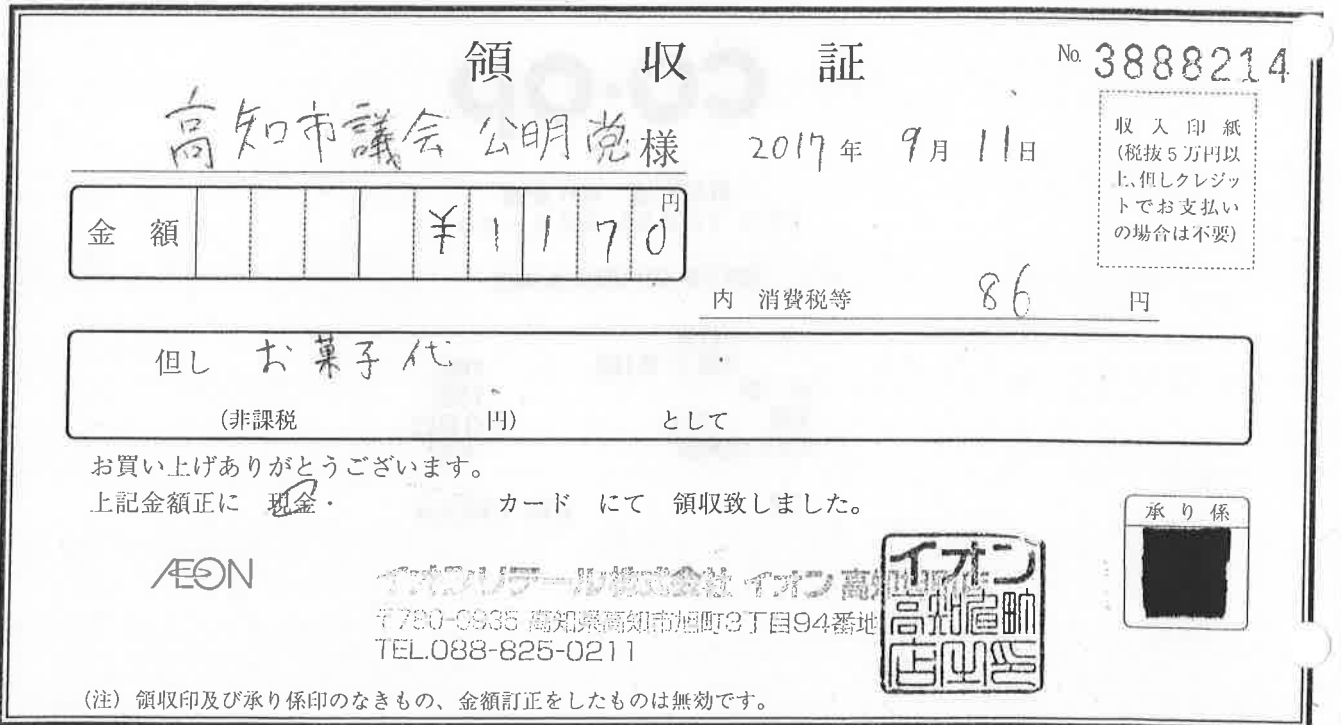 領収証
No. 3888214
高知市議会 公明党 様
2017年 9月 11日
収入印紙
(税抜5万円以
上、但しクレジッ
トでお支払い
の場合は不要)
金額 ¥1170円
内 消費税等 86 円
但し お菓子代
(非課税 円) として
お買い上げありがとうございます。
上記金額正に 現金・ カード にて 領収致しました。
承り係
ÆON
イオンリテール株式会社 イオン高知旭町店
〒780-0935 高知県高知市旭町3丁目94番地
TEL.088-825-0211
イオン
高知旭町
店
(注) 領収印及び承り係印のなきもの、金額訂正をしたものは無効です。